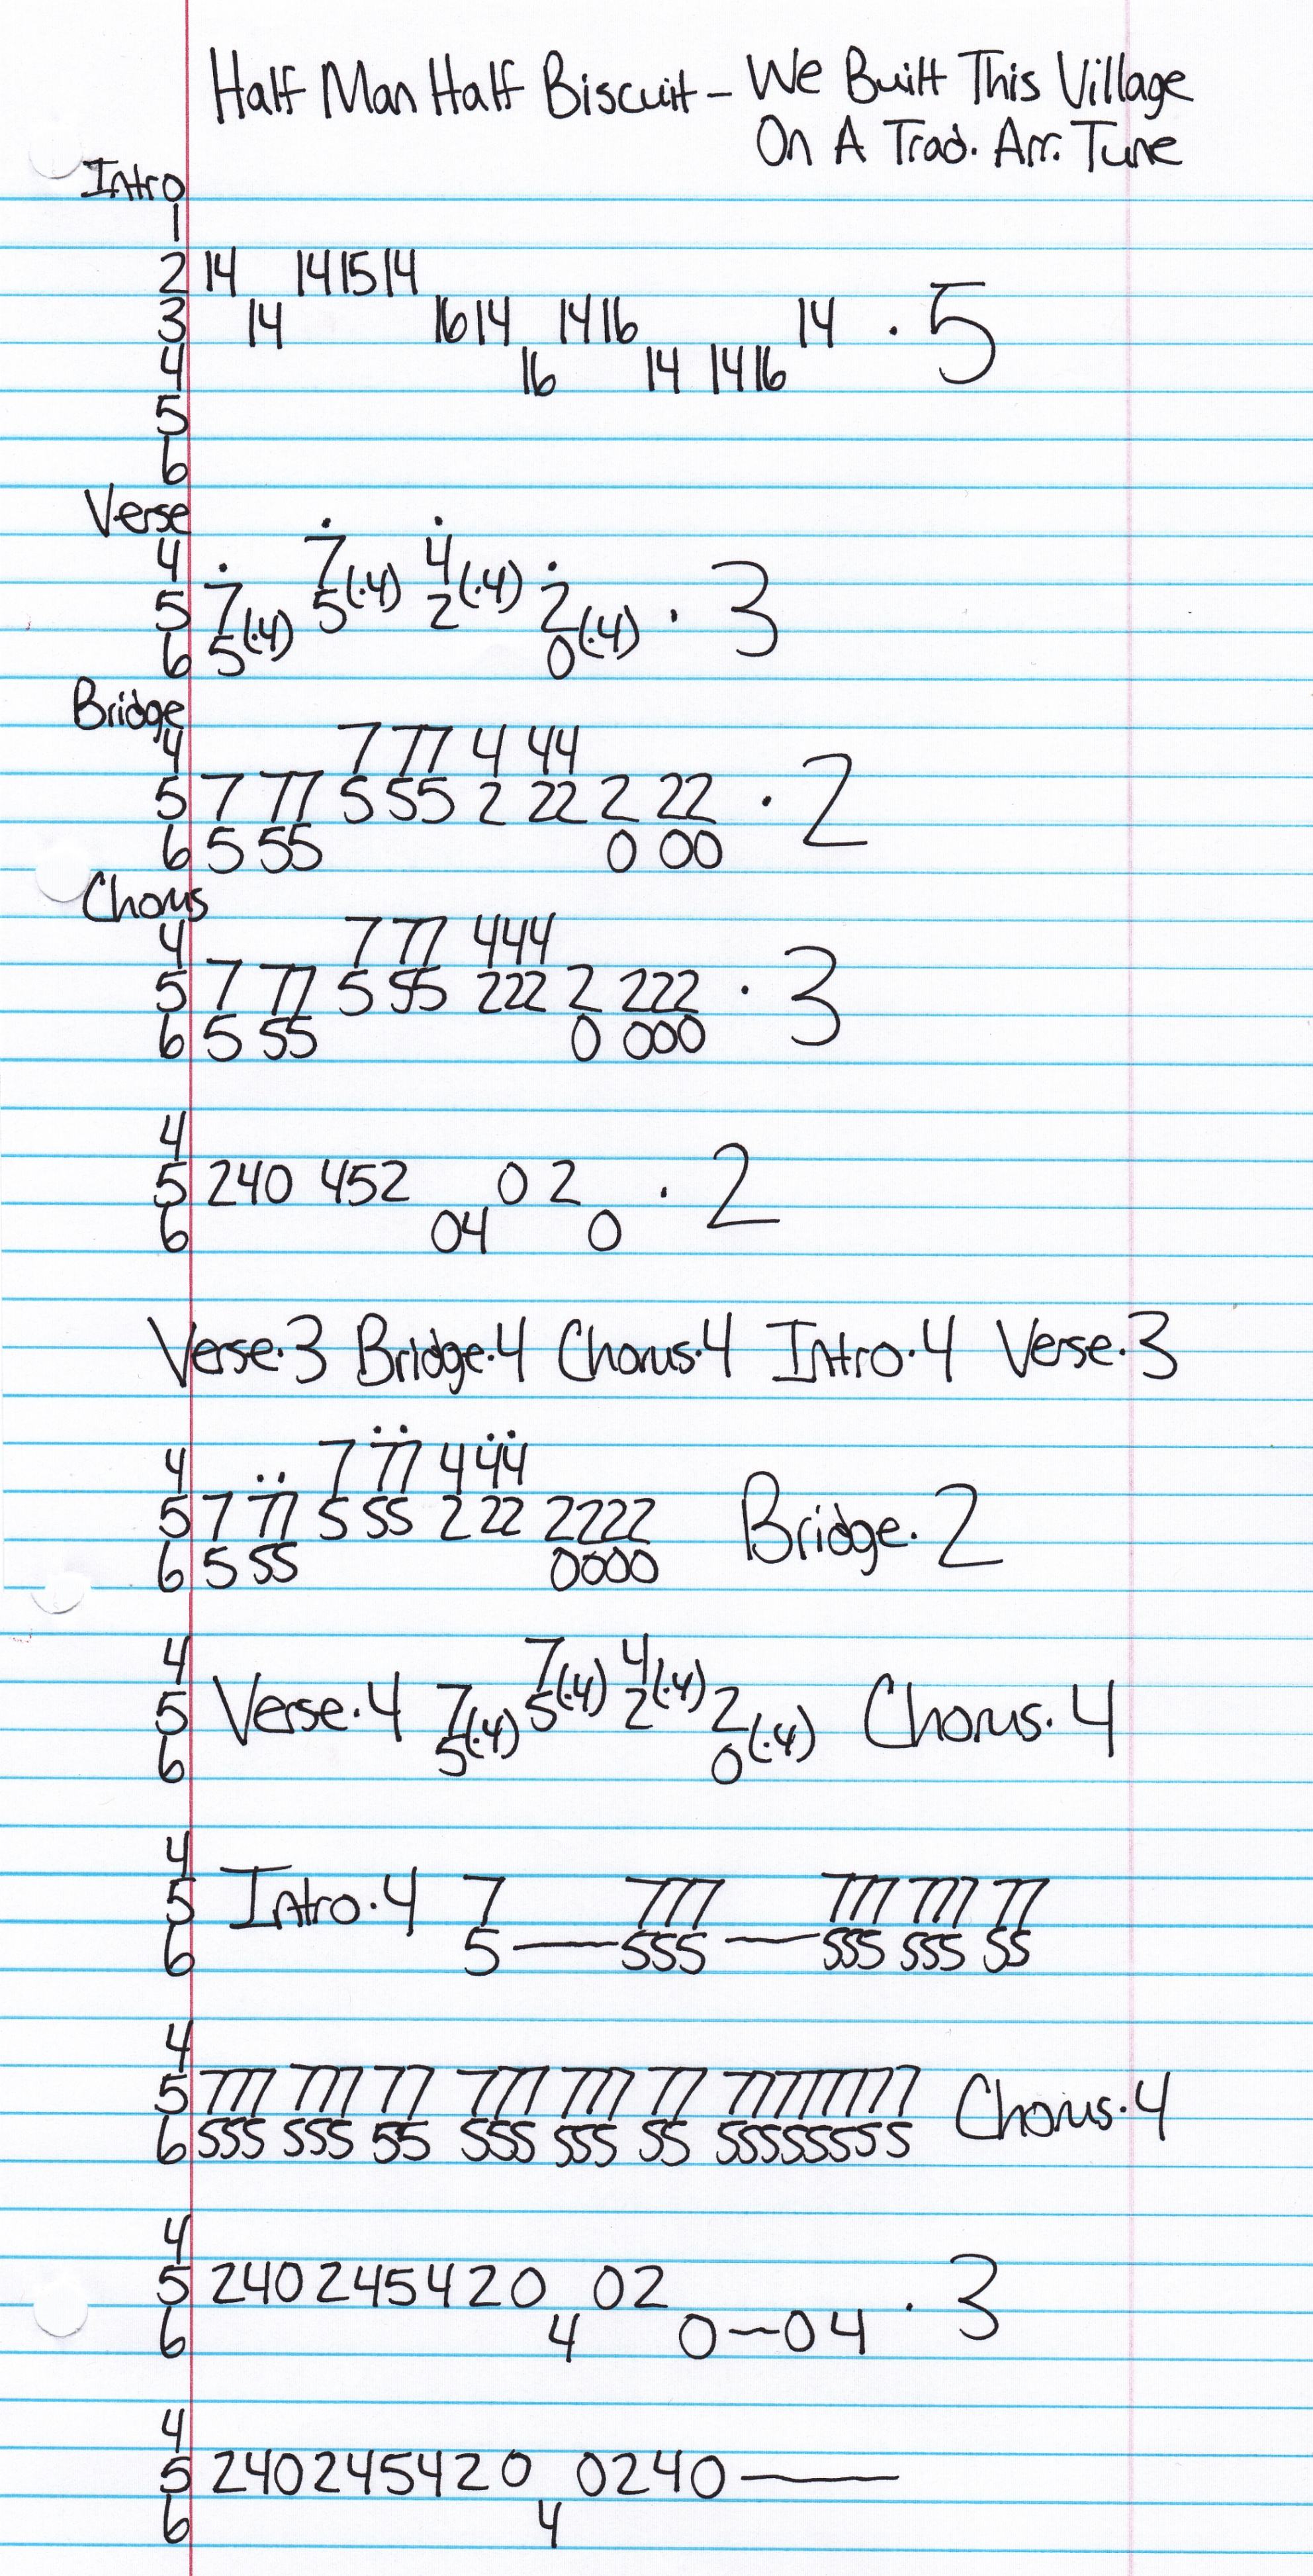 Half Man Half Biscuit - We Built This Village
On A Trad. Arr. Tune
Intro
1
2 14 14 15 14
3 14 16 14 14 16 14 · 5
4 16 14 14 16
5
6
Verse
4 7(·4) 4(·4)
5 7(·4) 5 2 2(·4) · 3
6 5 0
Bridge
4 7 77 4 44
5 7 77 5 55 2 22 2 22 · 2
6 5 55 0 00
Chorus
4 7 77 444
5 7 77 5 55 222 2 222 · 3
6 5 55 0 000
4
5 240 452 0 2 · 2
6 04 0
Verse·3 Bridge·4 Chorus·4 Intro·4 Verse·3
4 7 77 4 44
5 7 77 5 55 2 22 2222 Bridge·2
6 5 55 0000
4 7(·4) 4(·4)
5 Verse·4 7(·4) 5 2 2(·4) Chorus·4
6 5 0
4
5 Intro·4 7 777 777 777 77
6 5 — 555 — 555 555 55
4
5 777 777 77 777 777 77 77777777 Chorus·4
6 555 555 55 555 555 55 55555555
4
5 240245420 02 · 3
6 4 0—04
4
5 240245420 0240—
6 4